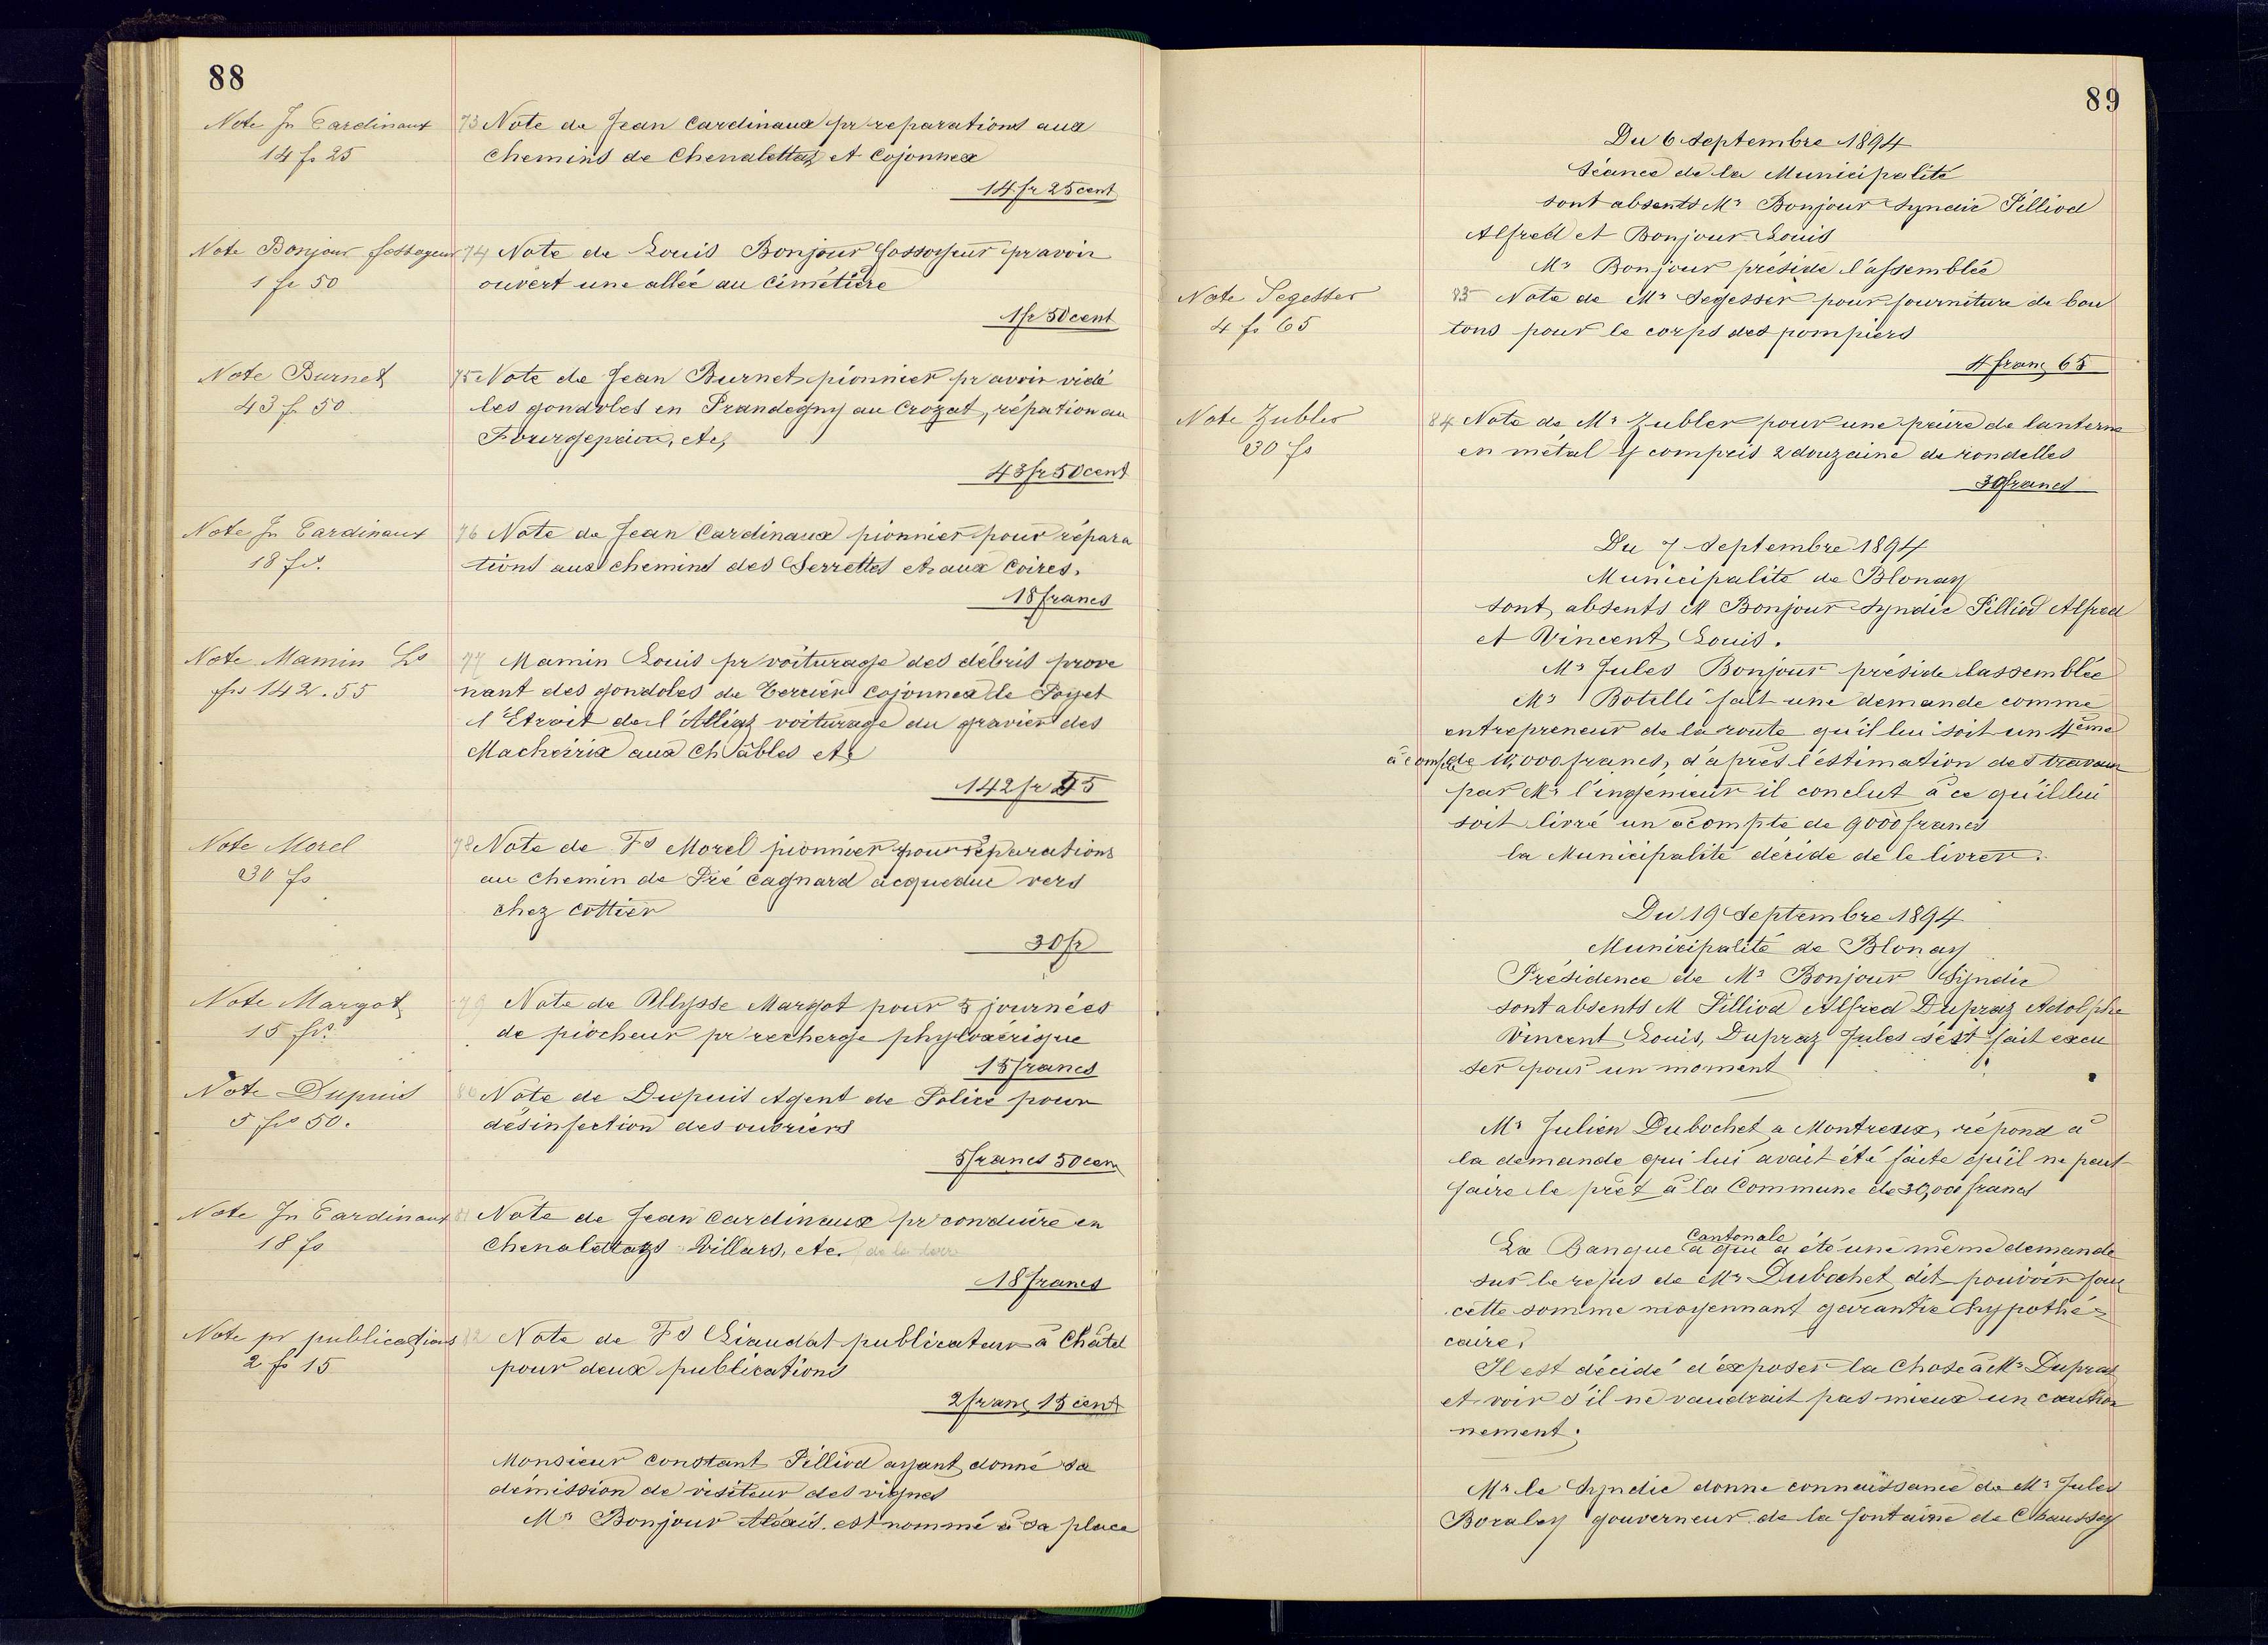 88
Note Jn Cardinaux
14 fs 25
73 Note de Jean Cardinaux pr reparations aux
chemins de Chenalettaz et Cojonnex
14 fr 25 cent
Note Bonjour fossoyeur
1 fr 50
74 Note de Louis Bonjour fossoyeur pr avoir
ouvert une allée au Cimétière
1 fr 50 cent
Note Burnet
43 f. 50
75 Note de Jean Burnet pionnier pr avoir vidé
les gondoles en Prandegny au Crozat, répation au
etc,
43 fr 50 cent
Note Jn Cardinaux
18 frs.
76 Note de Jean Cardinaux pionnier pour répara
tions aux chemins des Serrettes et aux Coires.
18 francs
Note Mamin Ls
frs 142.55
77 Mamin Louis pr voiturage des débris prove
nant des gondoles de Tercier Cojonnex le Poyet
l'Etroit de l'Alliaz voiturage du gravier des
aux Châbles etc
142 fr 45
Note Morel
30 fs
78 Note de Fs Morel pionnier pour réparations
au chemin de Pré Cagnard acqueduc vers
chez Cottier
30 fr
Note Margot
15 frs.
79 Note de Ulysse Margot pour 5 journées
de piocheur pr recherge phyloxérique
15 francs
Note Dupuis
5 frs 50.
80 Note de Dupuis Agent de Police pour
désinfection des ouvriers
5 francs 50 cen
Note Jn Cardinaux
18 fs
81 Note de Jean Cardinaux pr conduire en
Chenalettaz Villars, etc.
18 francs
Note pr publications
2 fs 15
82 Note de Fs Liaudat publicateur à Châtel
pour deux publications
2 franc 15 cent
Monsieur Constant Pilliod ayant donné sa
démission de visiteur des vignes
Mr Bonjour est nommé à sa place
89
Du 6 Septembre 1894
Séance de la Municipalité
sont absents Mr Bonjour Syndic Pilliod
Alfred et Bonjour Louis
Mr Bonjour préside l'assemblée
Note Segesser
4 fs 65
83 Note de Mr Segesser pour fourniture de bou
tons pour le corps des pompiers
4 franc 65
Note Zubler
30 fs
84 Note de Mr Zubler pour une paire de lanterne
en métal y compris 2 douzaine de rondelles
30 francs
Du 7 Septembre 1894
Municipalité de Blonay
sont absents M Bonjour Syndic Pilliod Alfred
et Vincent Louis.
Mr Jules Bonjour préside lassemblée
Mr Botelli fait une demande comme
entrepreneur de la route qu'il lui soit un 4ème
à compte de 10,000 francs, d'après l'éstimation des travaux
par Mr l'ingénieur il conclut à ce qu'il lui
soit livré un acompte de 9000 francs
la Municipalité décide de le livrer.
Du 19 Septembre 1894
Municipalité de Blonay
Présidence de Mr Bonjour Syndic
sont absents M Pilliod Alfred Dupraz Adolphe
Vincent Louis, Dupraz Jules s'est fait excu
ser pour un moment
Mr Julien Dubochet a Montreux, répond à
la demande qui lui avait été faite qu'il ne peut
faire le prêt à la Commune de 30,000 francs
La Banque Cantonale à qui a été une même demande
sur le refus de Mr Dubochet dit pouvoir
cette somme moyennant garantie hypothé=
caire.
Il est décidé d'éxposer la chose à Mr Dupraz
et voir s'il ne vaudrait pas mieux un caution
nement.
Mr le Syndic donne connaissance de Mr Jules
Boraley gouverneur de la fontaine de Chaussey